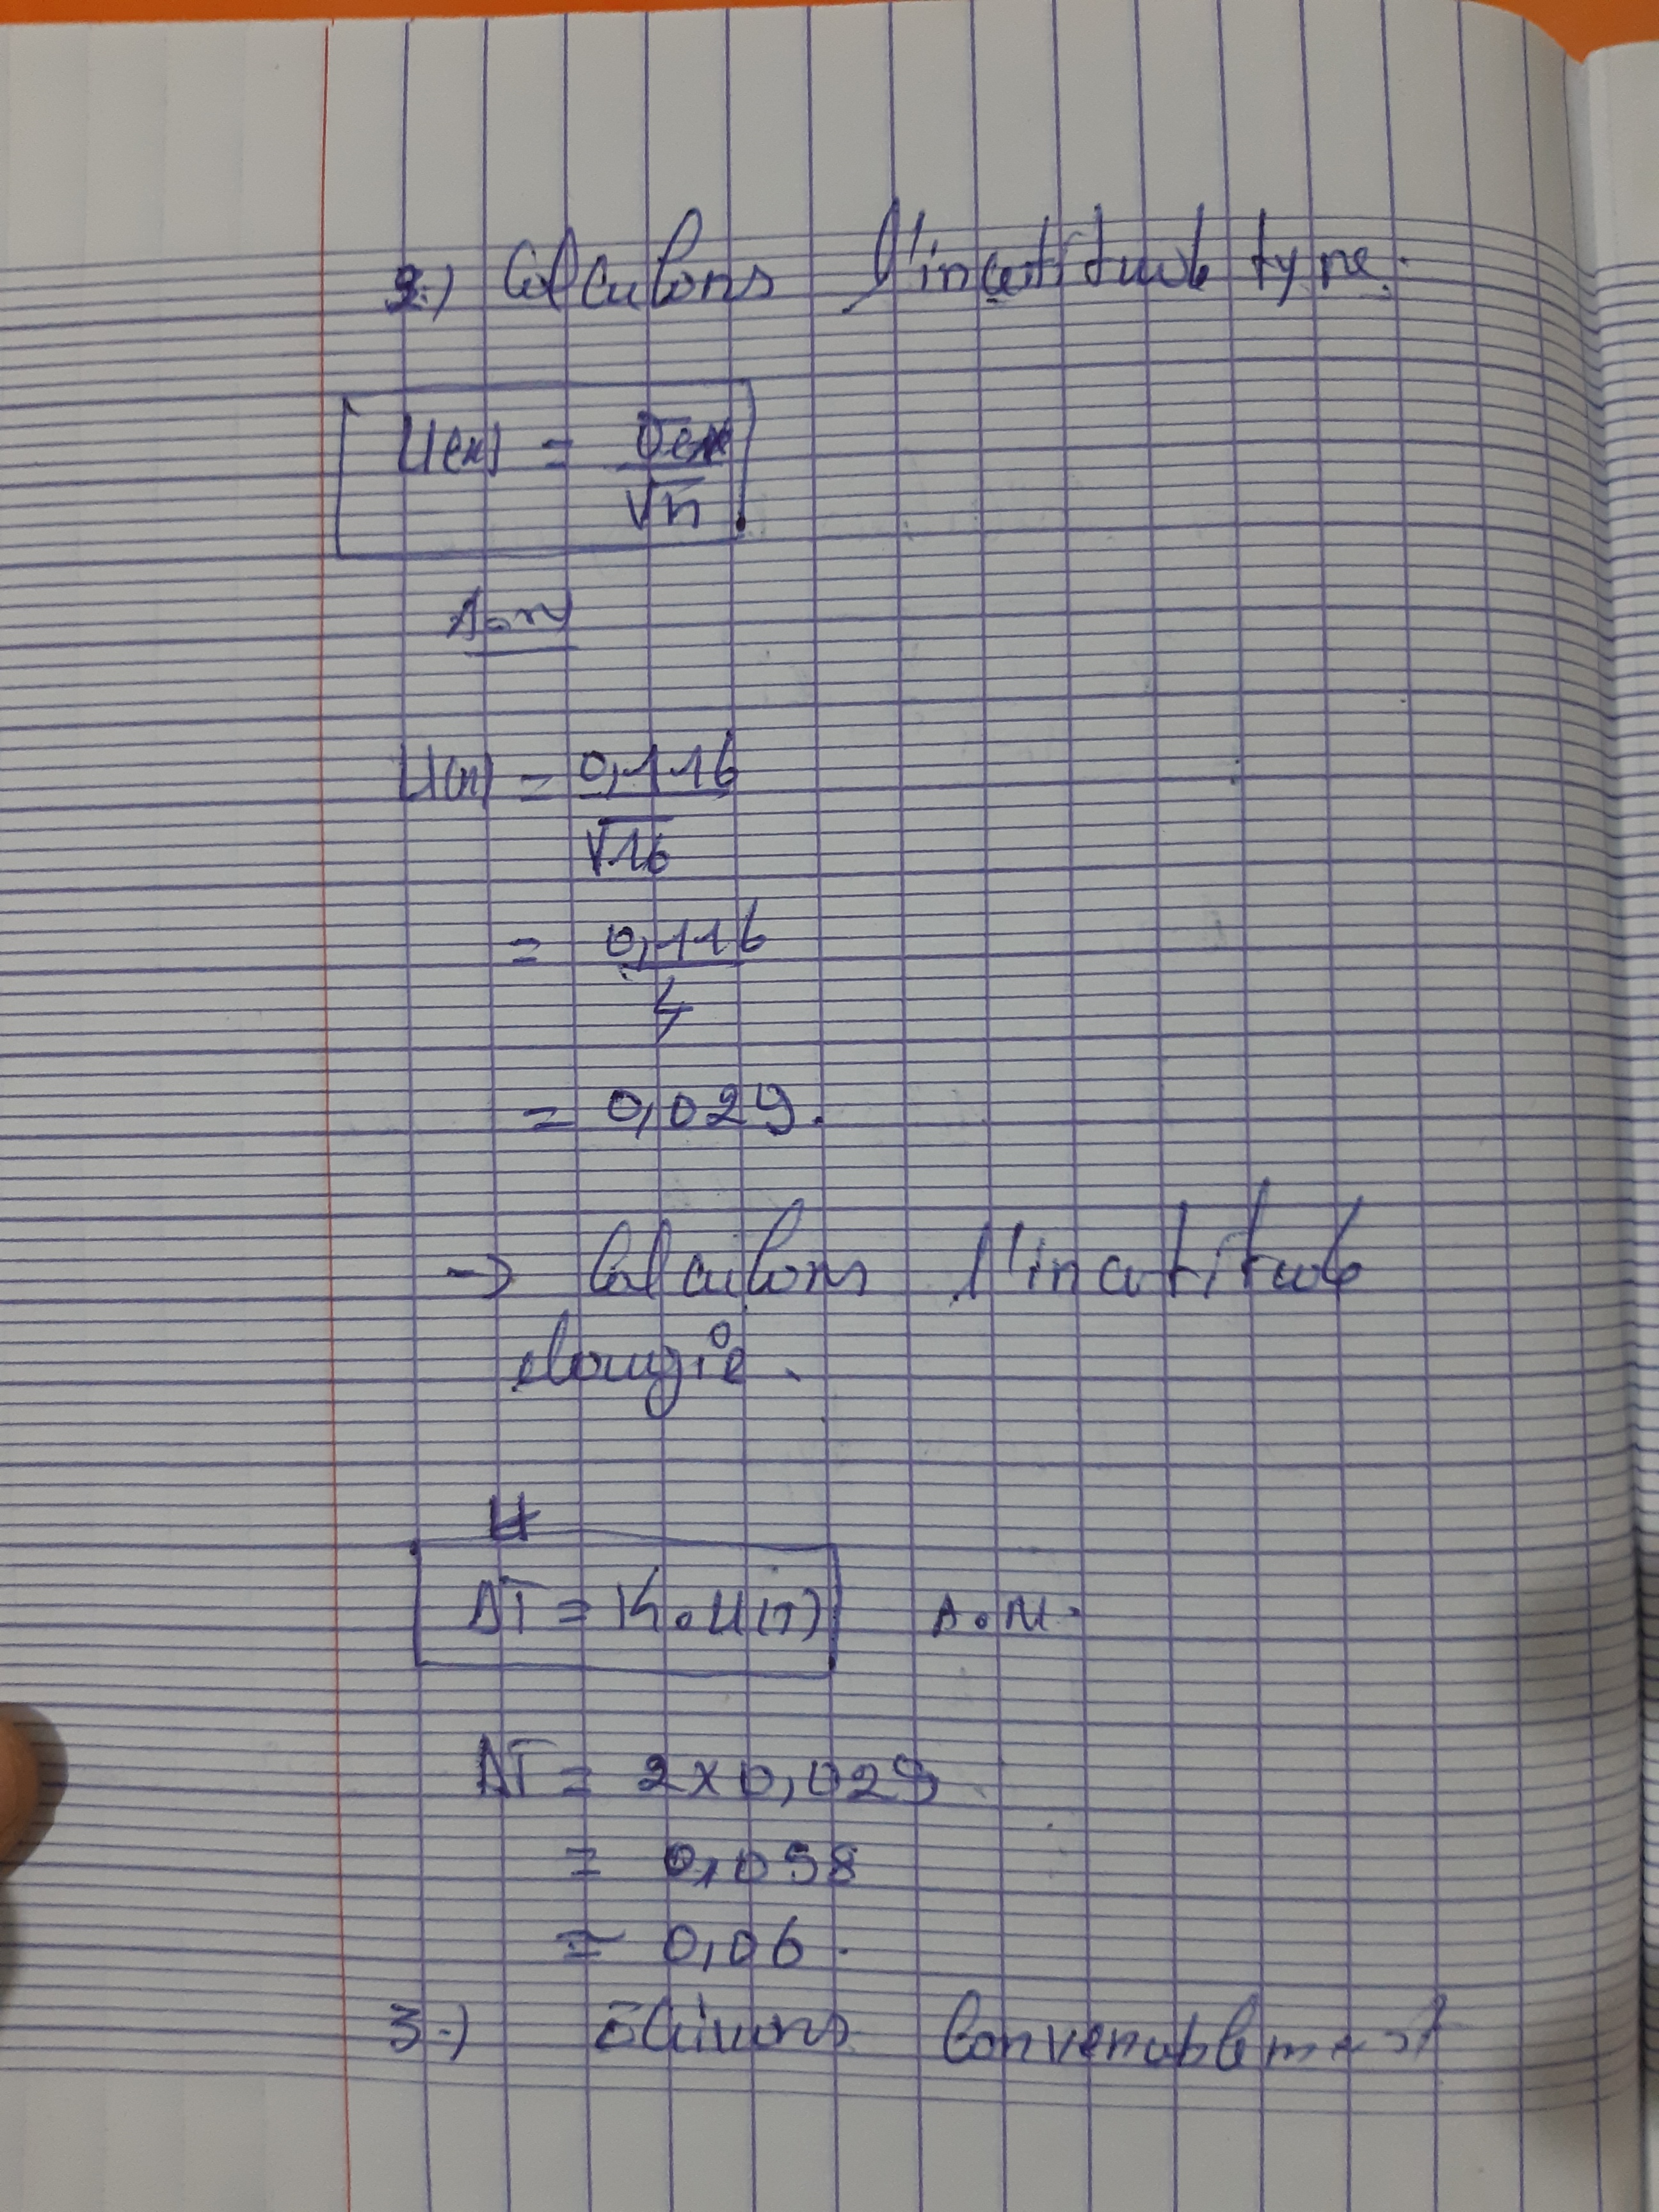 2.) Calculons l'incertitude type.
U(x) = σex / √n
A.N
U(x) = 0,116 / √16
= 0,116 / 4
= 0,029.
→ Calculons l'incertitude
élargie.
U
ΔT = K.U(T) A.N.
ΔT = 2x0,029
= 0,058
= 0,06.
3.) Écrivons convenablement